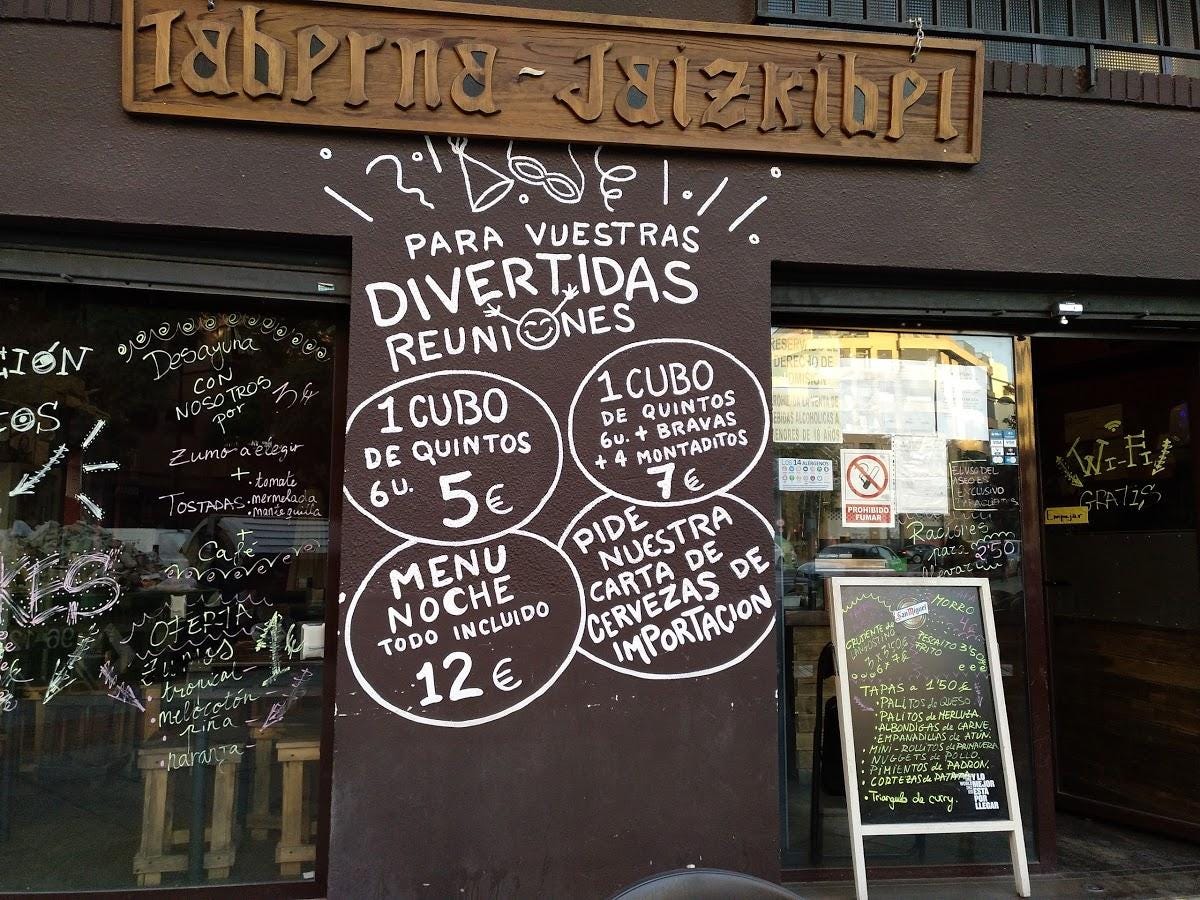 Taberna - Jaizkibel
PARA VUESTRAS
DIVERTIDAS
REUNIONES
1 CUBO
DE QUINTOS
6 U.
5€
1 CUBO
DE QUINTOS
6u. + BRAVAS
+ 4 MONTADITOS
7€
MENU
NOCHE
TODO INCLUIDO
12€
PIDE
NUESTRA
CARTA DE
CERVEZAS DE
IMPORTACION
Desayuna
CON
NOSOTROS
por
Zumo a elegir
+
TOSTADAS
· tomate
· mermelada
· mantequilla
+
Café
OFERTA
Zumos
· tropical
· melocotón
· piña
· naranja
DERECHO DE
MENORES DE 18 AÑOS
LOS 14 ALÉRGENOS
PROHIBIDO
FUMAR
EL USO DEL
ASEO ES
EXCLUSIVO
Raciones
para
llevar
2'50
Wi-Fi
GRATIS
Empujar
San Miguel
MORRO
4€
PESCAITO
FRITO
3'50€
TAPAS a 1'50€
· PALITOS de QUESO
· PALITOS de MERLUZA
· ALBONDIGAS de CARNE
· EMPANADILLAS de ATÚN
· MINI-ROLLITOS de PRIMAVERA
· NUGGETS de POLLO
· PIMIENTOS de PADRON
· CORTEZAS de PATATA
· Triangulo de curry.
Y LO
MEJOR
ESTÁ
POR
LLEGAR